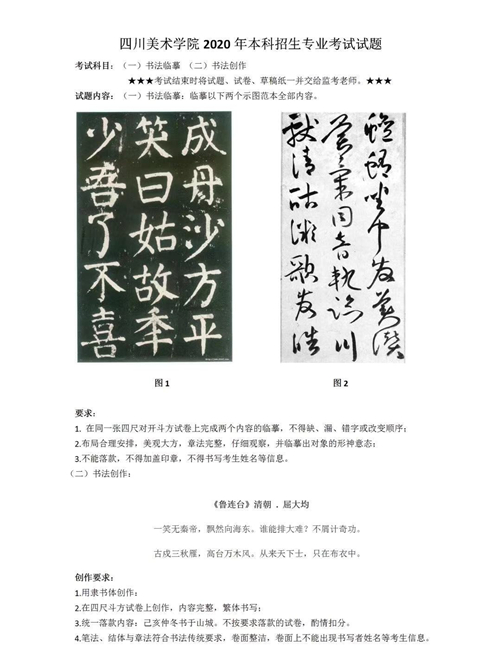 四川美术学院 2020 年本科招生专业考试试题
考试科目：（一）书法临摹 （二）书法创作
★★★考试结束时将试题、试卷、草稿纸一并交给监考老师。★★★
试题内容：（一）书法临摹：临摹以下两个示图范本全部内容。
成丹沙方平
笑曰姑故秊
少吾了不喜
坐中發美讚
異氣同音軌臨川
獻清酤微歌發皓
图 1
图 2
要求：
1. 在同一张四尺对开斗方试卷上完成两个内容的临摹，不得缺、漏、错字或改变顺序；
2.布局合理安排，美观大方，章法完整，仔细观察，并临摹出对象的形神意态；
3.不能落款，不得加盖印章，不得书写考生姓名等信息。
（二）书法创作：
《鲁连台》清朝 . 屈大均
一笑无秦帝，飘然向海东。谁能排大难？不屑计奇功。
古戍三秋雁，高台万木风。从来天下士，只在布衣中。
创作要求：
1.用隶书体创作；
2.在四尺斗方试卷上创作，内容完整，繁体书写；
3.统一落款内容：己亥仲冬书于山城。不按要求落款的试卷，酌情扣分。
4.笔法、结体与章法符合书法传统要求，卷面整洁，卷面上不能出现书写者姓名等考生信息。